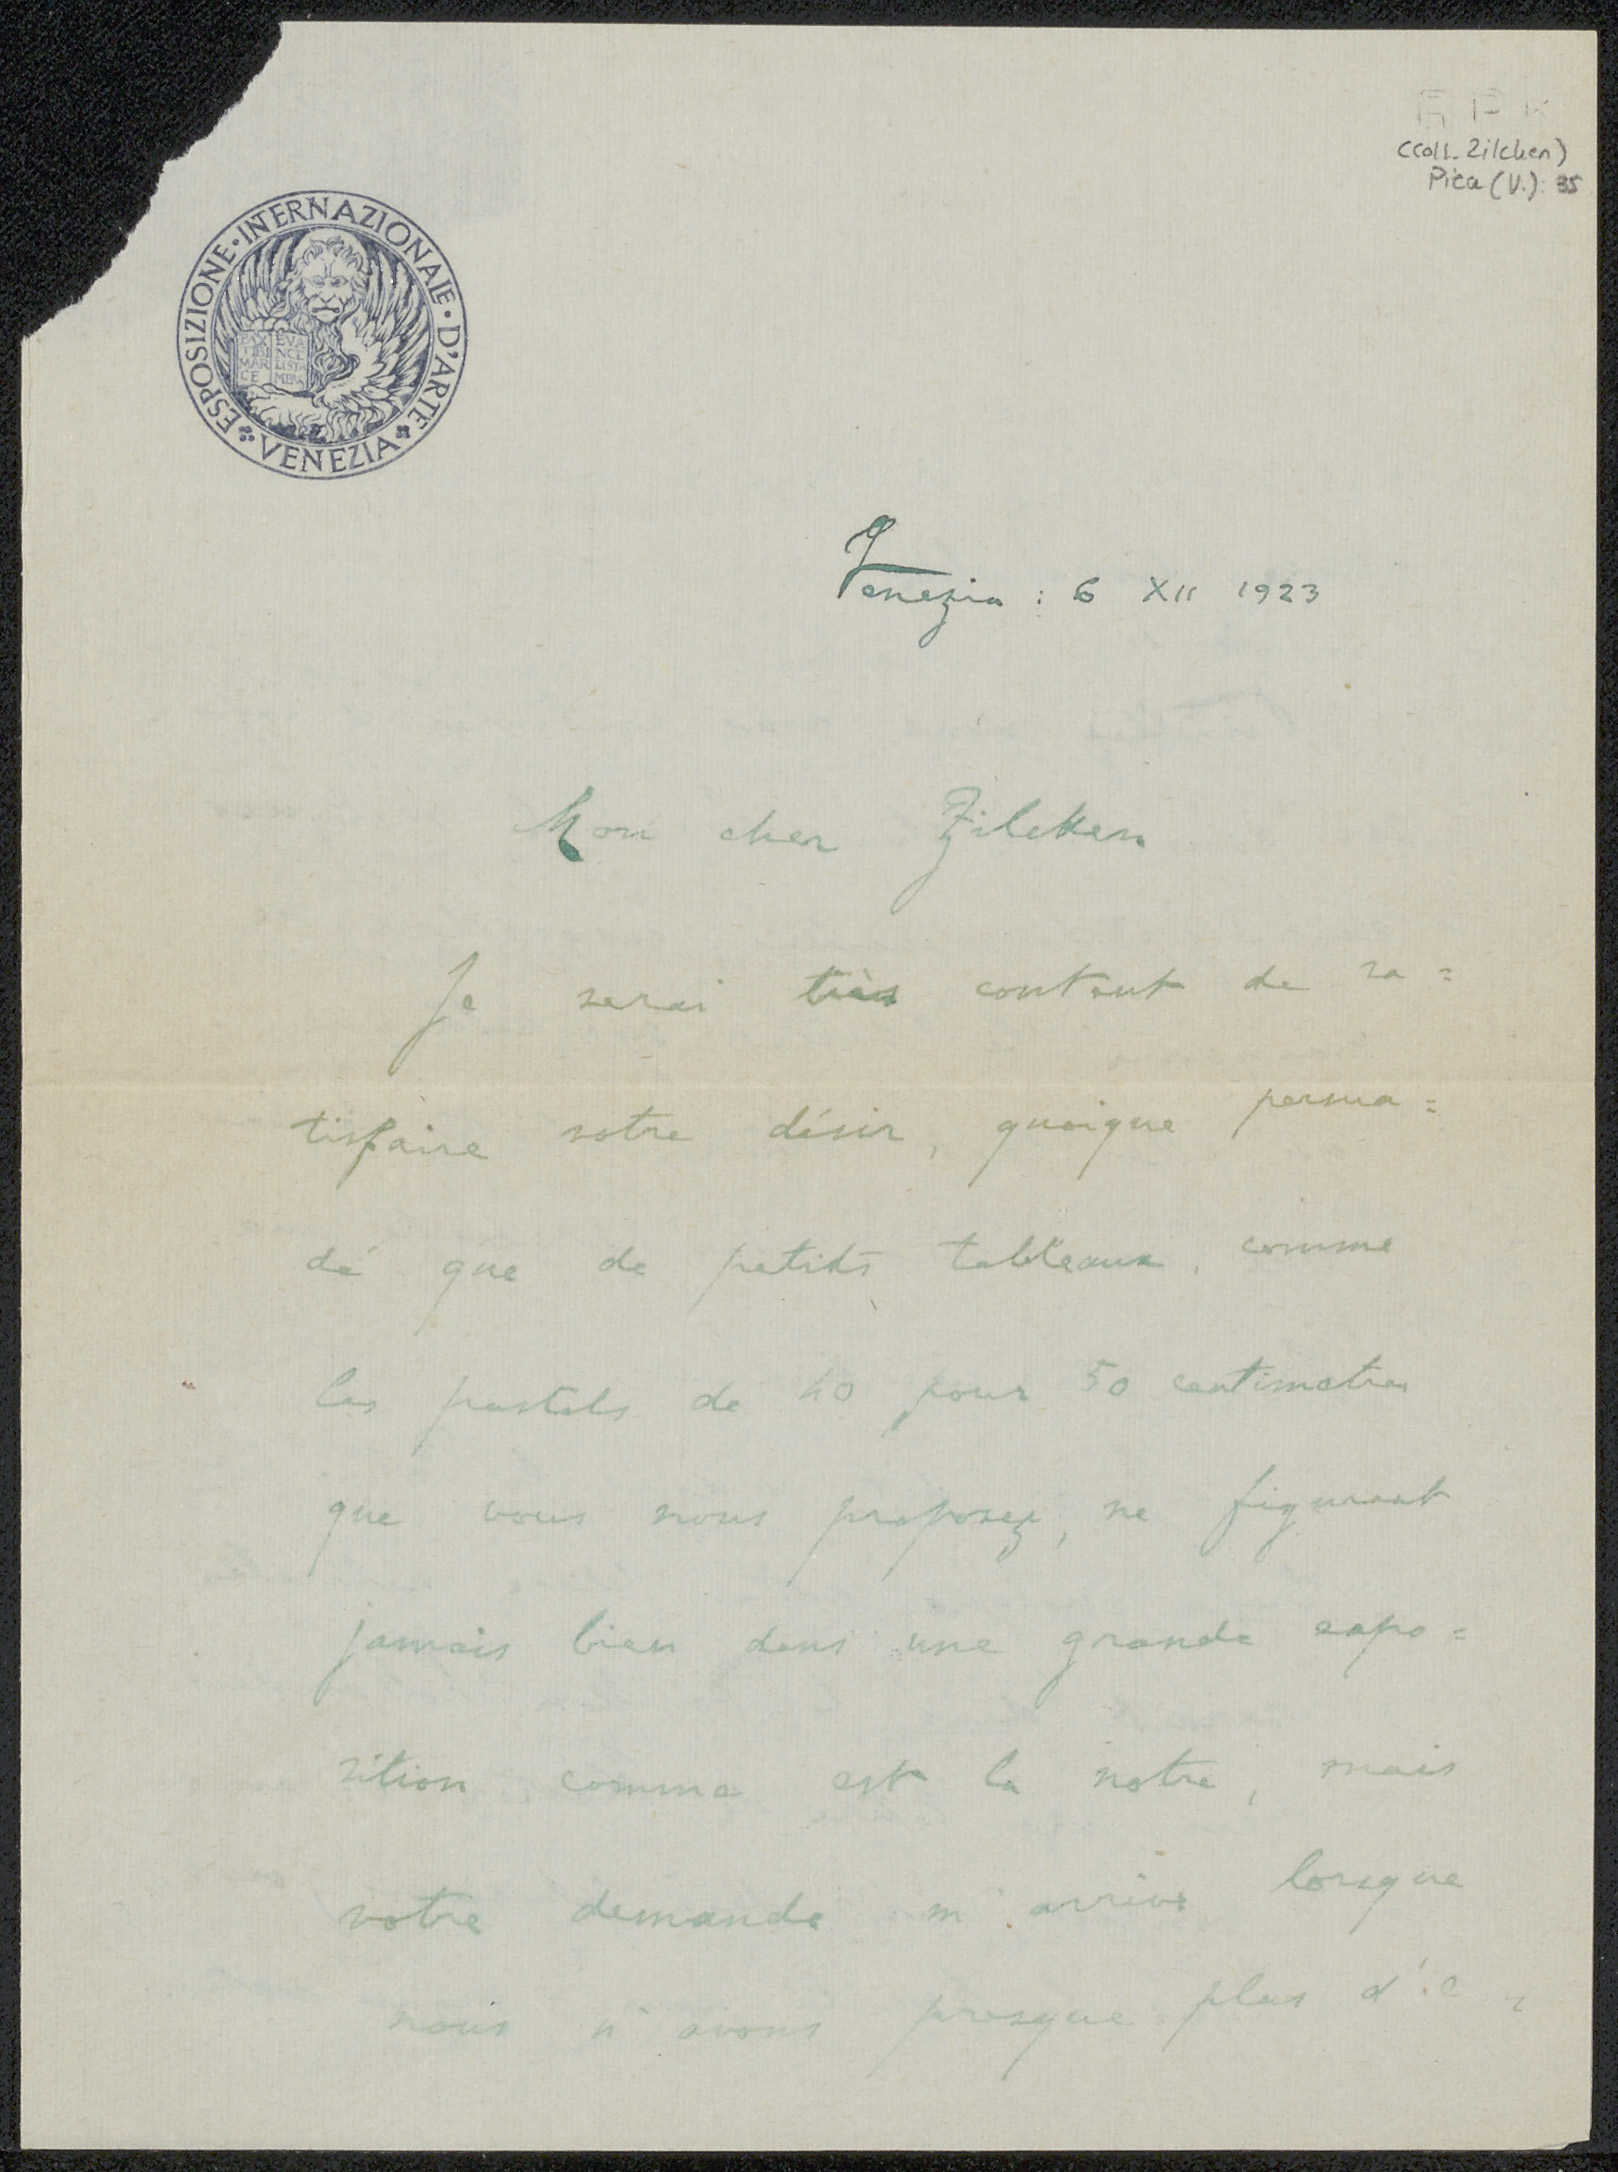 R P K
(coll. Zilcken)
Pica (V.): 35
ESPOSIZIONE · INTERNAZIONALE · D'ARTE · VENEZIA
PAX EVA
TIBI NGE
MAR LISTA
CE MEVS
Venezia : 6 XII 1923
Mon cher Zilcken
Je serai très content de sa=
tisfaire votre désir, quoique persua=
dé que de petits tableaux, comme
les pastels de 40 pour 50 centimetres
que vous nous proposez, ne figurent
jamais bien dans une grande expo=
sition comme est la notre, mais
votre demande m'arrive lorsque
nous n'avons presque plus d'e